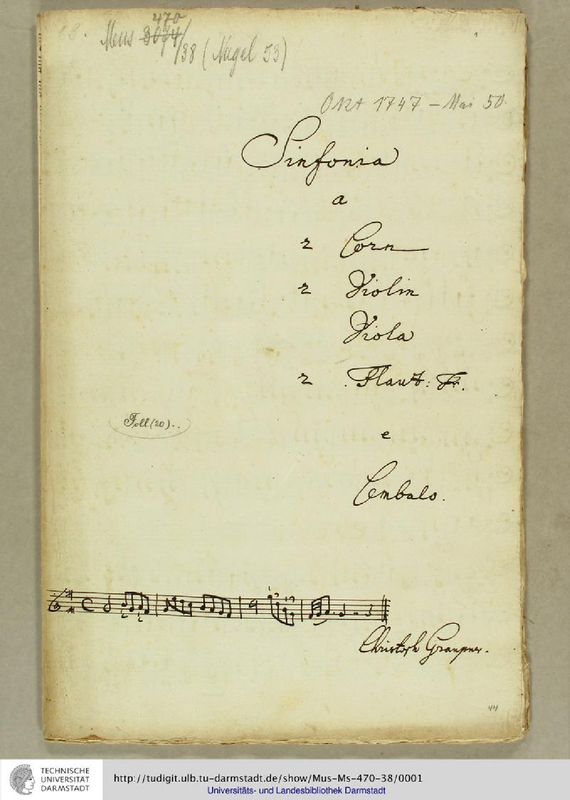 470
Mus 3074/38 (Nagel 53)
Okt 1747 – Mai 50.
Sinfonia
a
2 Corn
2 Violin
Viola
2 Flaut: Tr.
Foll(20)..
e
Cembalo.
Christoph Graupner.
44
TECHNISCHE
UNIVERSITÄT
DARMSTADT
http://tudigit.ulb.tu-darmstadt.de/show/Mus-Ms-470-38/0001
Universitäts- und Landesbibliothek Darmstadt